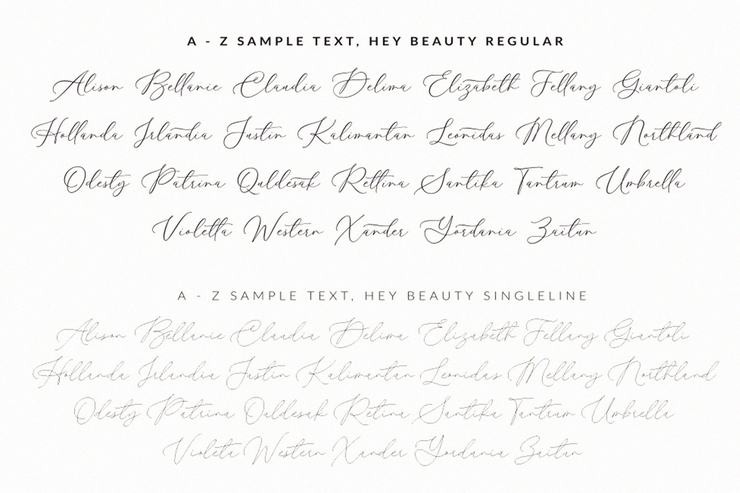 A - Z SAMPLE TEXT, HEY BEAUTY REGULAR
Alison Bellanie Claudia Delima Elizabeth Fellany Giantoli
Hollanda Irlandia Justin Kalimantan Leonidas Mellany Northland
Odesty Patrina Quldesak Rettina Santika Tantrum Umbrella
Violetta Western Xander Yordania Zaitun
A - Z SAMPLE TEXT, HEY BEAUTY SINGLELINE
Alison Bellanie Claudia Delima Elizabeth Fellany Giantoli
Hollanda Irlandia Justin Kalimantan Leonidas Mellany Northland
Odesty Patrina Quldesak Retina Santika Tantrum Umbrella
Violeta Western Xander Yordania Zaitun